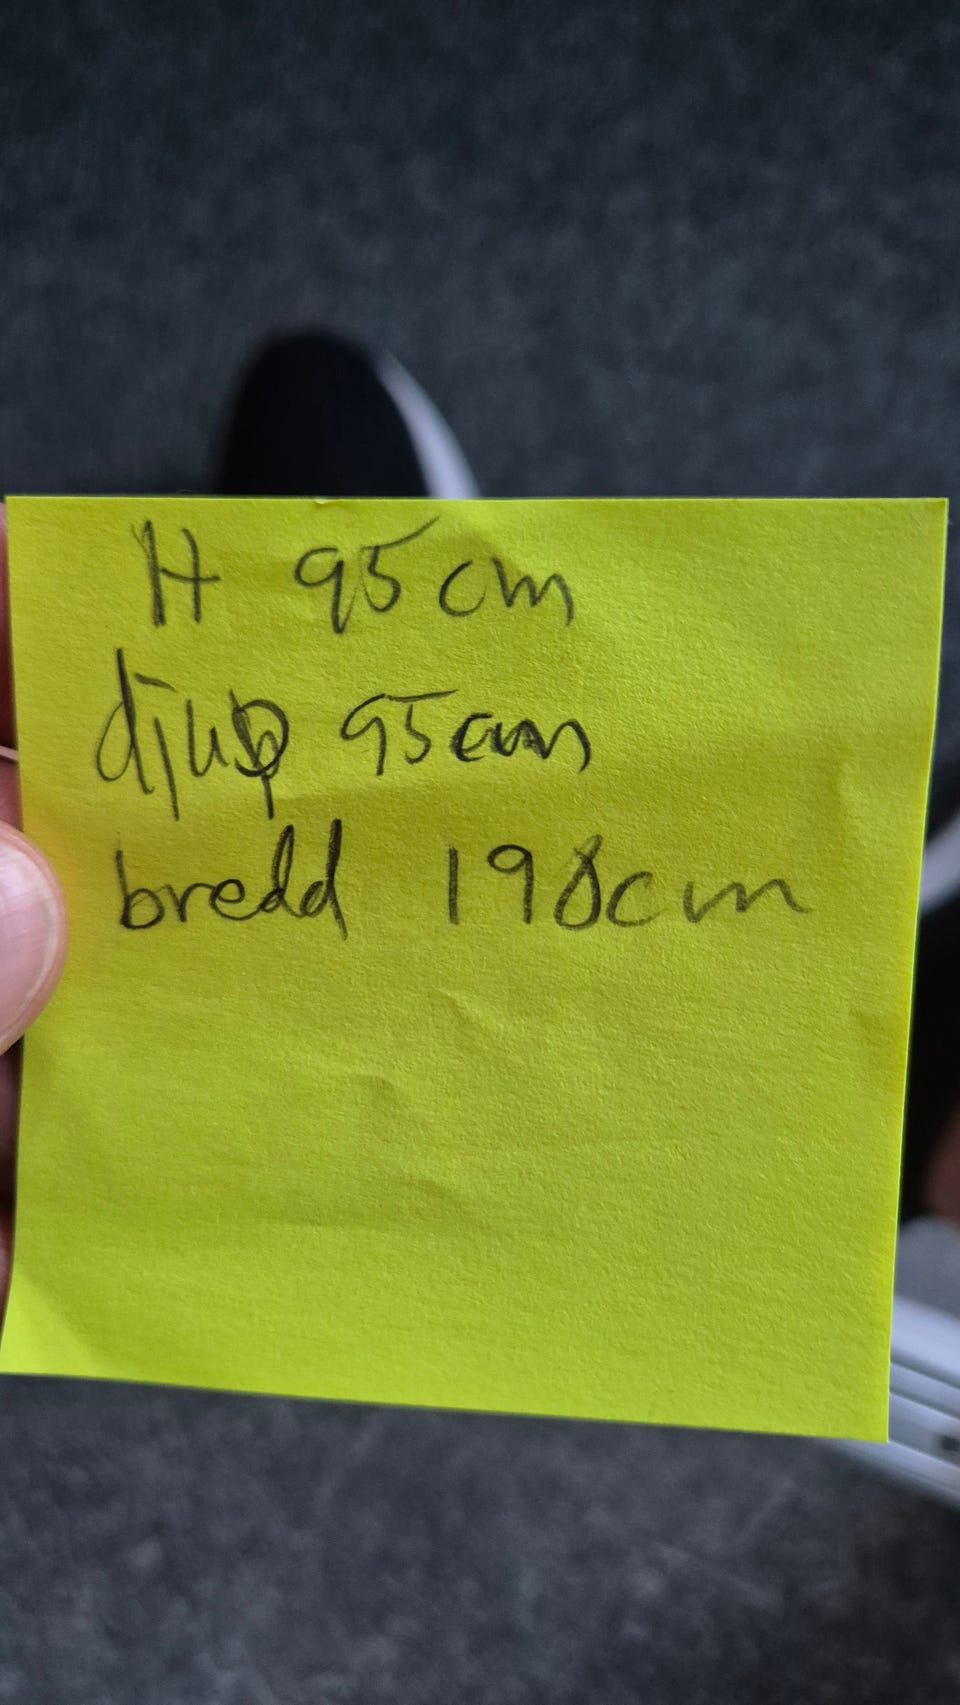 H 95 cm
djup 95 cm
bredd 198cm